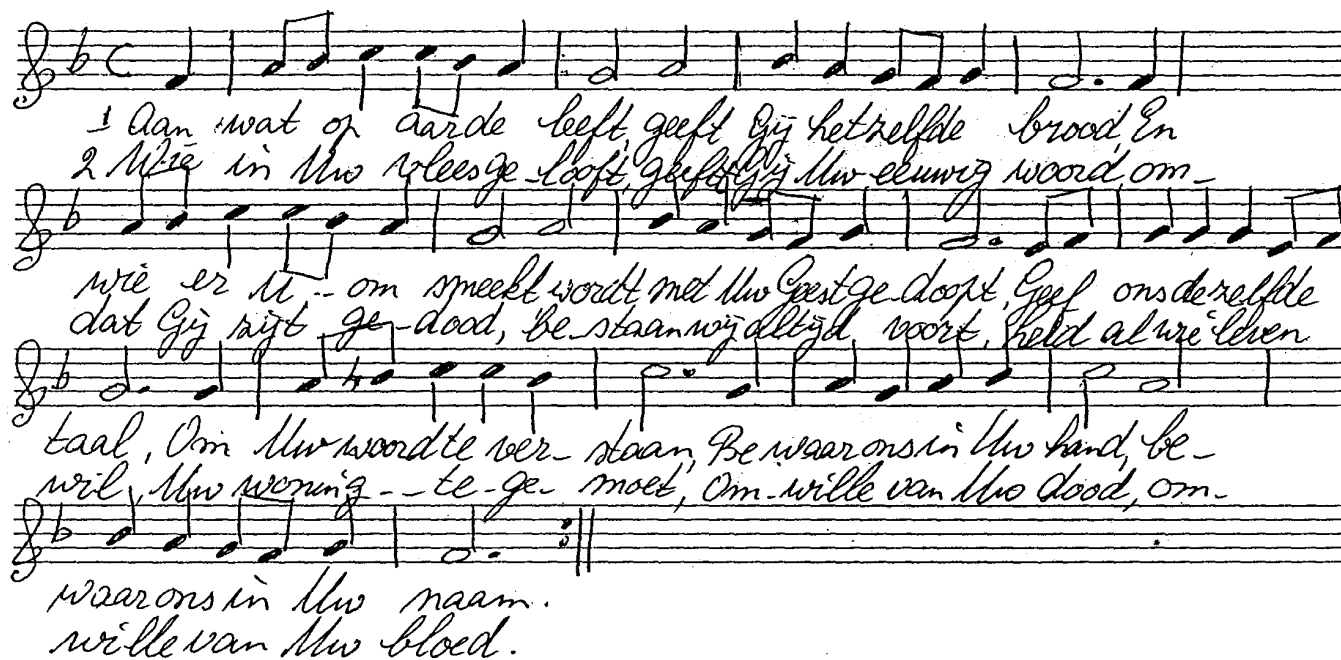 1 Aan wat op aarde leeft, geeft Gij hetzelfde brood, En
2 Wie in Uw vleesge-looft, geeft Gij Uw eeuwig woord, om-
wie er U -- om smeekt wordt met Uw Geest ge-doopt, Geef ons dezelfde
dat Gij zijt ge-dood, be-staan wij altijd voort, held al wie leven
taal, Om Uw woord te ver- staan, Bewaar ons in Uw hand, be-
wil, Uw woning -- te-ge- moet, Om-wille van Uw dood, om-
waar ons in Uw naam.
wille van Uw bloed.